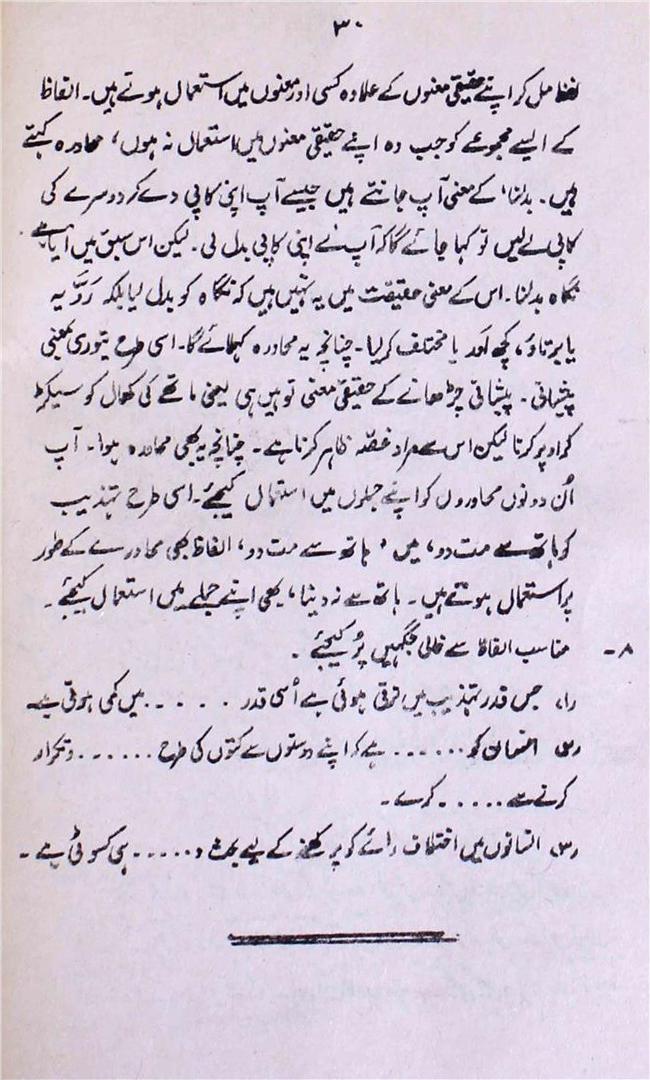 ۳۰
لفظ مل کر اپنے حقیقی معنوں کے علاوہ کسی اور معنوں میں استعمال ہوتے ہیں۔ الفاظ
کے ایسے مجموعے کو جب وہ اپنے حقیقی معنوں میں استعمال نہ ہوں، محاورہ کہتے
ہیں۔ بدلنا، کے معنی آپ جانتے ہیں جیسے آپ اپنی کاپی دے کر دوسرے کی
کاپی لے لیں تو کہا جائے گا کہ آپ نے اپنی کاپی بدل لی۔ لیکن اس سبق میں آیا ہے
نگاہ بدلنا۔ اس کے معنی حقیقت میں یہ نہیں ہیں کہ نگاہ کو بدل لیا بلکہ رَدَّیہ
یا برتاؤ، کچھ اور یا مختلف کر لیا۔ چنانچہ یہ محاورہ کہلائے گا۔ اسی طرح تیوری بمعنی
پیشانی۔ پیشانی چڑھانے کے حقیقی معنی تو ہیں ہی یعنی ماتھے کی کھال کو سیکڑ
کر اوپر کرنا لیکن اس سے مراد غصّہ ظاہر کرنا ہے۔ چنانچہ یہ بھی محاورہ ہوا۔ آپ
اُن دونوں محاوروں کو اپنے جملوں میں استعمال کیجئے۔ اسی طرح تہذیب
کو ہاتھ سے مت دو، میں ' ہاتھ سے مت دو، الفاظ بھی محاورے کے طور
پر استعمال ہوتے ہیں۔ ہاتھ سے نہ دینا، بھی اپنے جملے میں استعمال کیجئے۔
۸۔ مناسب الفاظ سے خالی جگہیں پُر کیجئے۔
(۱) جس قدر تہذیب میں ترقی ہوئی ہے اُسی قدر ۔۔۔۔۔ میں کمی ہوتی ہے۔
(۲) انسان کو ۔۔۔۔۔۔ ہے کہ اپنے دوستوں سے کتوں کی طرح ۔۔۔۔۔۔ و تکرار
کرنے سے ۔۔۔۔۔ کرے۔
(۳) انسانوں میں اختلاف رائے کو پرکھنے کے لیے بحث و ۔۔۔۔۔ ہی کسوٹی ہے۔